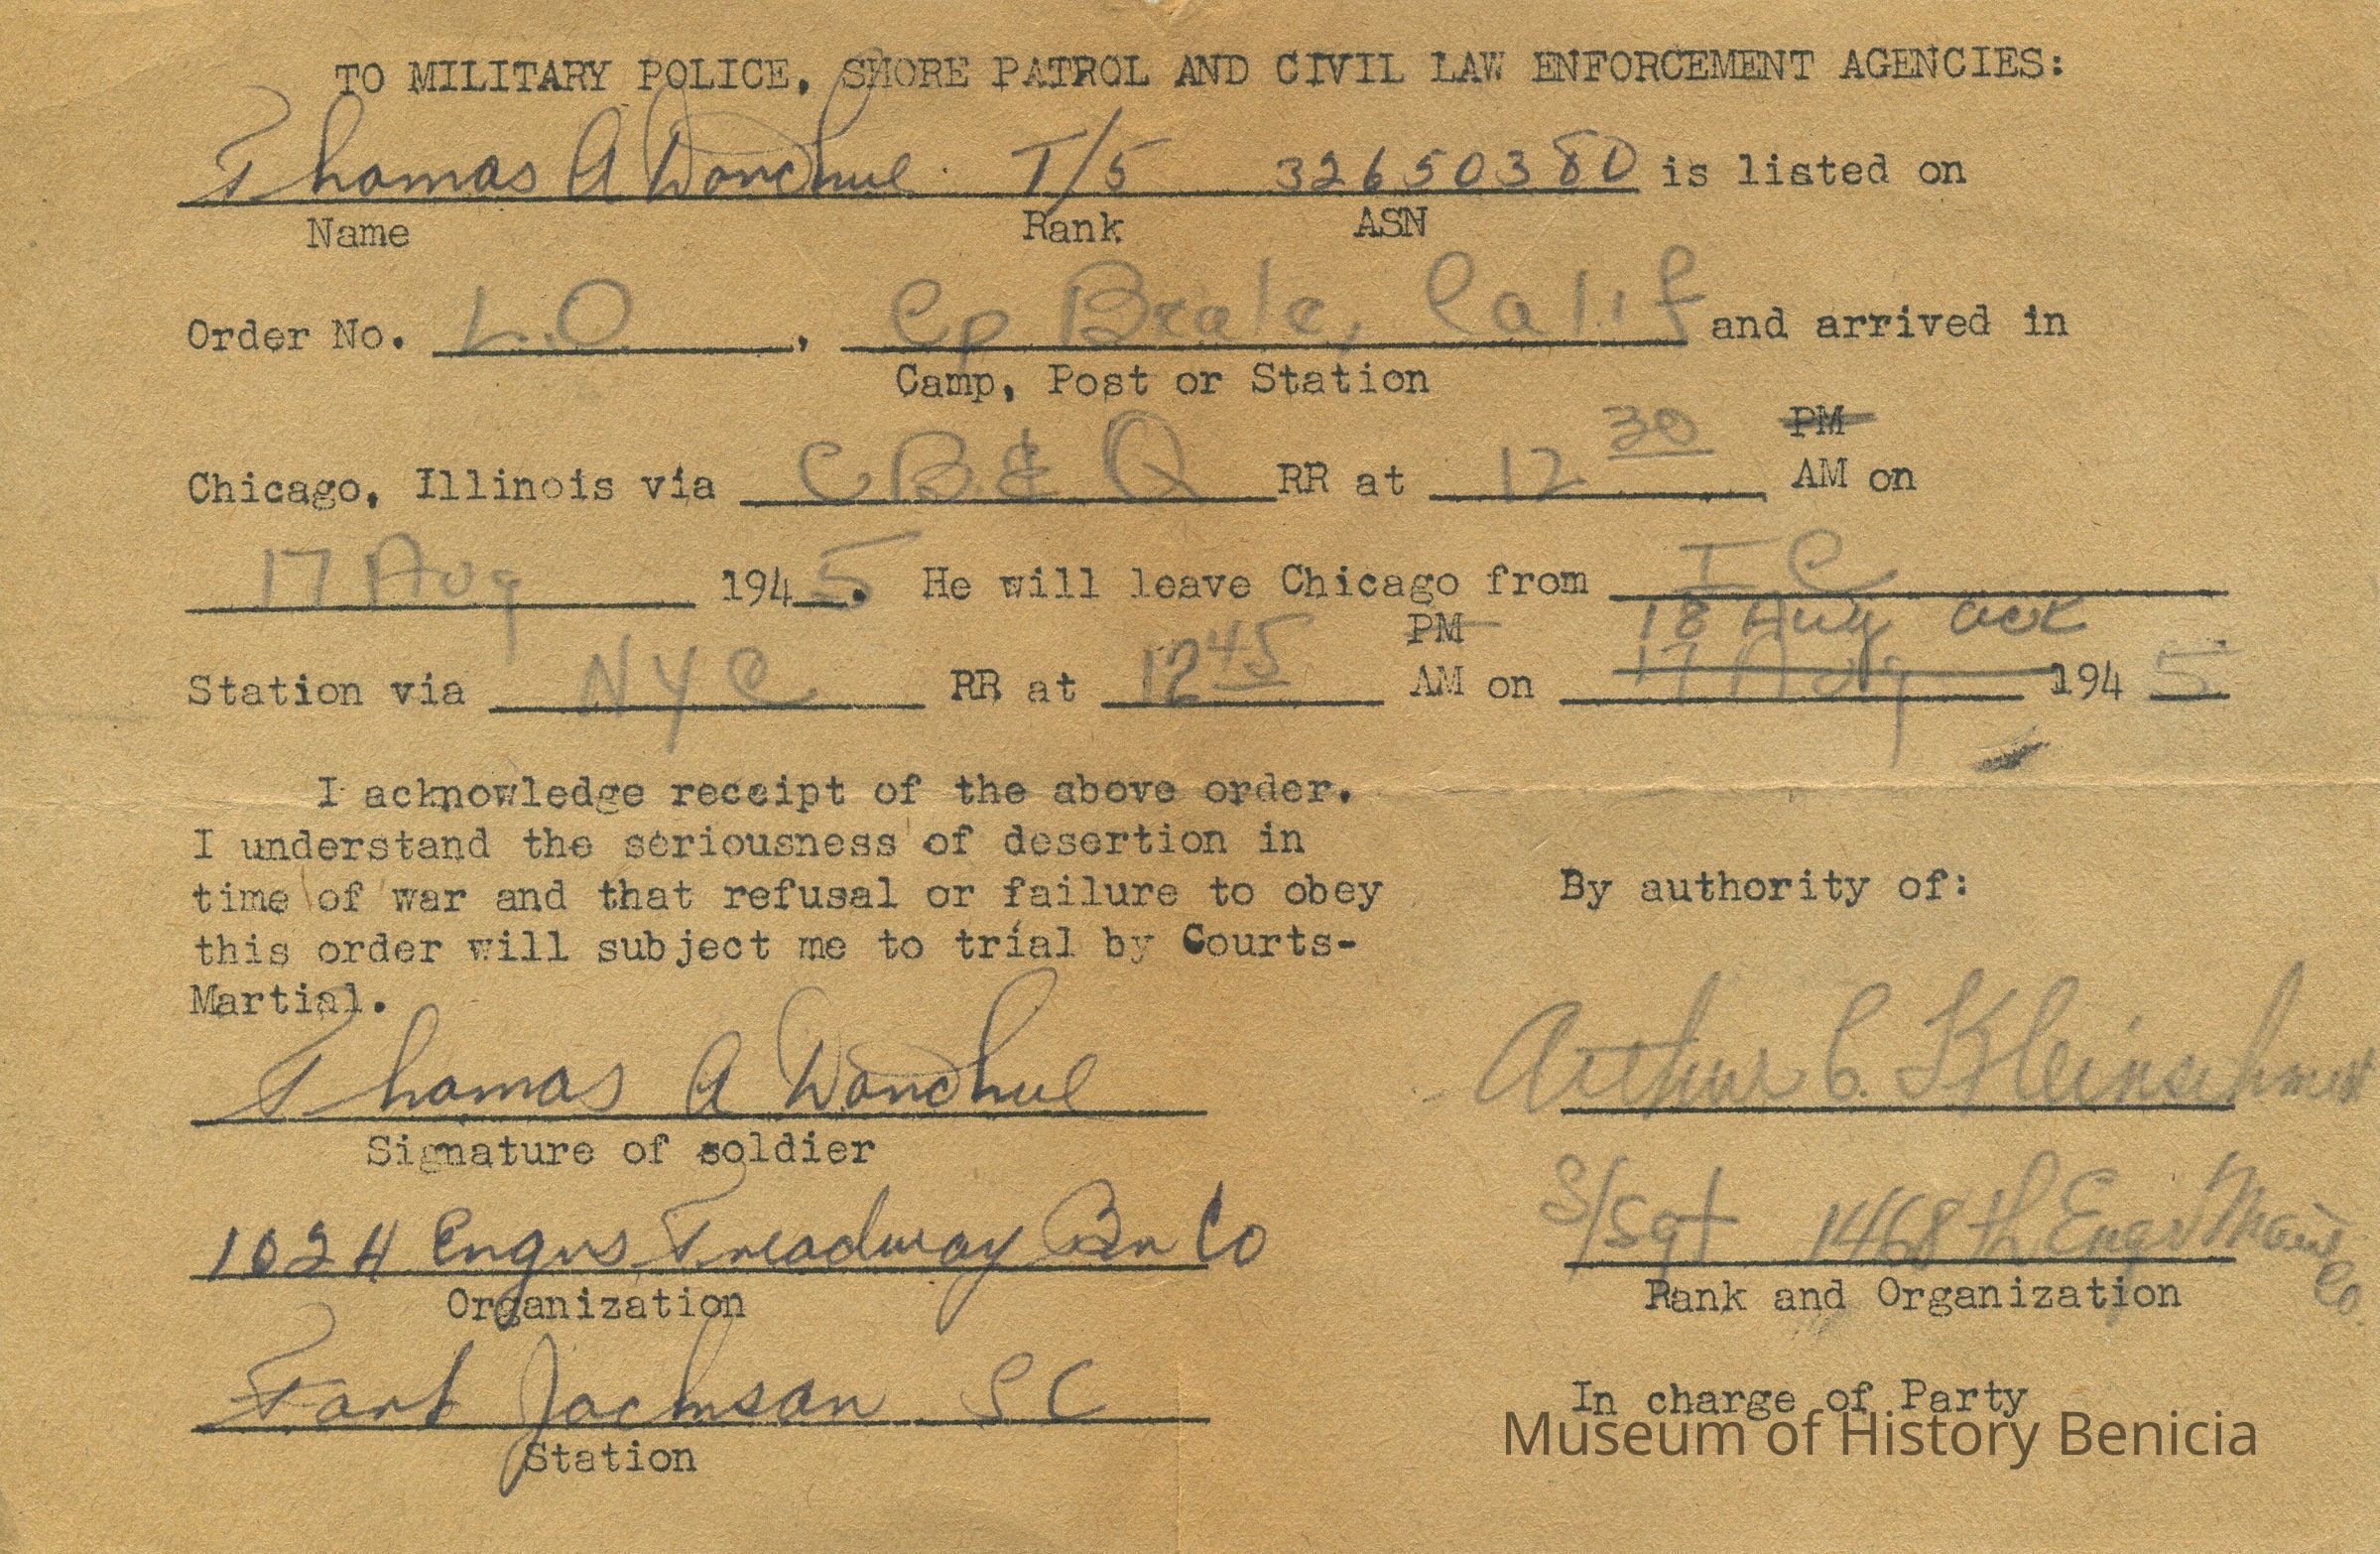 TO MILITARY POLICE, SHORE PATROL AND CIVIL LAW ENFORCEMENT AGENCIES:
Thomas A Donohue T/5 32650380 is listed on
Name Rank ASN
Order No. L.O. , Cp Beale, Calif and arrived in
Camp, Post or Station
PM
Chicago, Illinois via CB & Q RR at 12 30 AM on
17 Aug 1945. He will leave Chicago from I C
PM 18 Aug ack
Station via NYC RR at 12 45 AM on 17 Aug 1945
I acknowledge receipt of the above order.
I understand the seriousness of desertion in
time of war and that refusal or failure to obey
this order will subject me to trial by Courts-
Martial.
By authority of:
Thomas A Donohue
Signature of soldier
Arthur C. Kleinschmidt
1024 Engrs Treadway Br Co
Organization
S/Sgt 1468th Engr Maint Co.
Rank and Organization
Fort Jackson S C
Station
In charge of Party
Museum of History Benicia